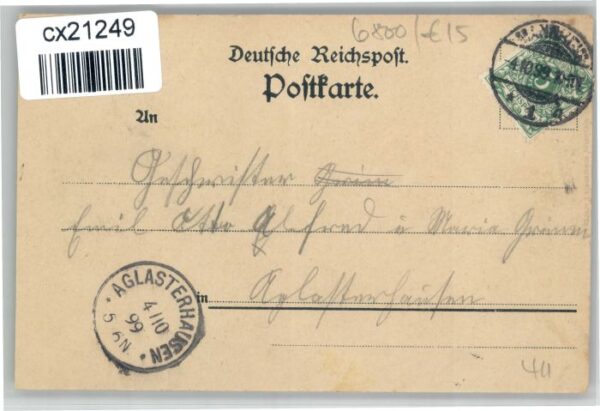 cx21249
6800/€15
Deutsche Reichspost.
Postkarte.
4.10.99
1
An
Geschwister Grimm
Emil Otto Alfred u Maria Grimm
in Aglasterhausen
AGLASTERHAUSEN
4/10
99
5-6N.
411